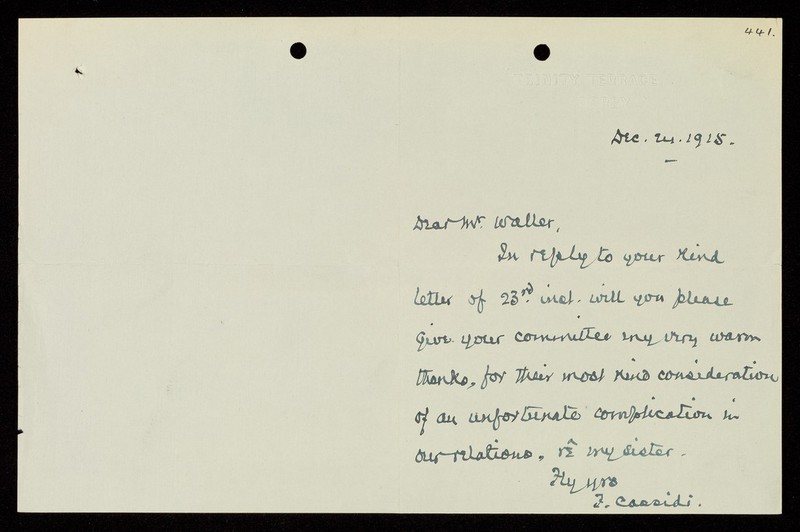 441.
Dec. 24. 1915.
Dear Mr. Waller,
In reply to your kind
letter of 23rd. inst. will you please
give your committee my very warm
thanks, for their most kind consideration
of an unfortunate complication in
our relations, re my sister.
Fly yrs
F. Cassidi.